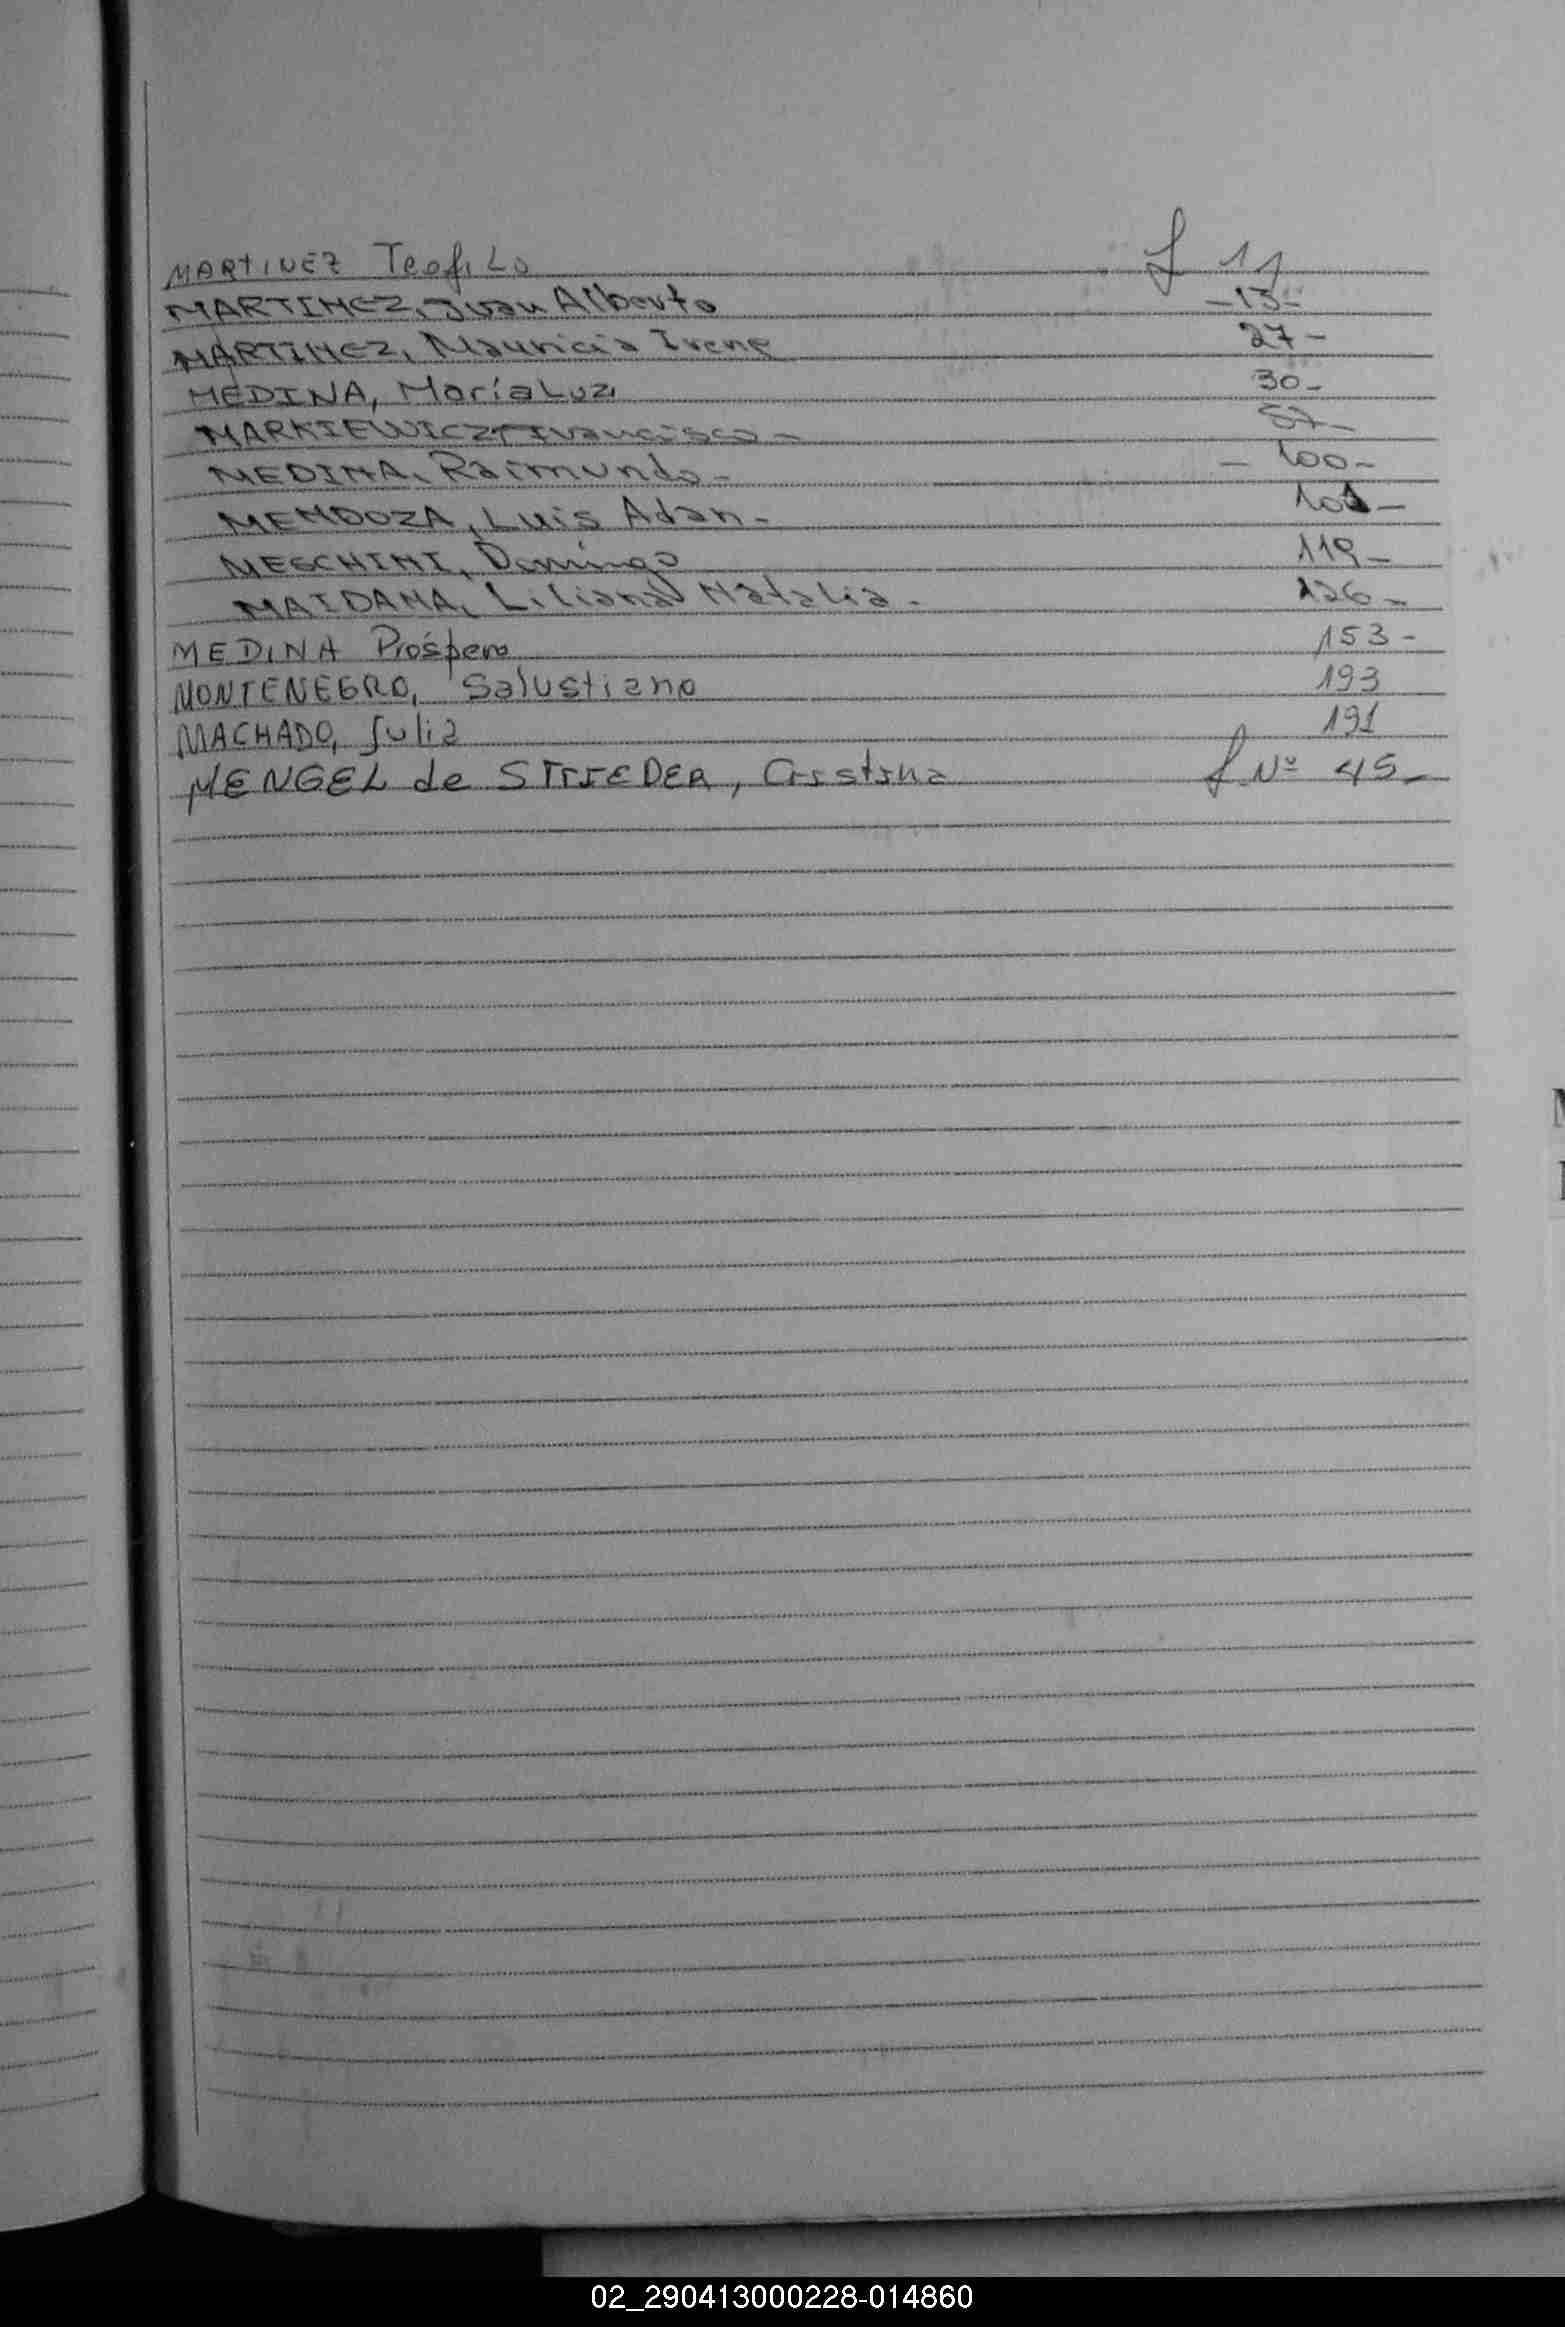 MARTINEZ Teofilo f 11
MARTINEZ, Juan Alberto - 13 -
MARTINEZ, Mauricia Irene 27 -
MEDINA, María Luz 30 -
MARKIEWICZ, Francisco - 57 -
MEDINA, Raimundo - - 100 -
MENDOZA, Luis Adan - 101 -
MESCHINI, Domingo 119 -
MAIDANA, Liliana Natalia - 126 -
MEDINA Próspero 153 -
MONTENEGRO, Salustiano 193
MACHADO, Julia 191
MENGEL de STRIEDER, Cristina f Nº 45 -
02_290413000228-014860